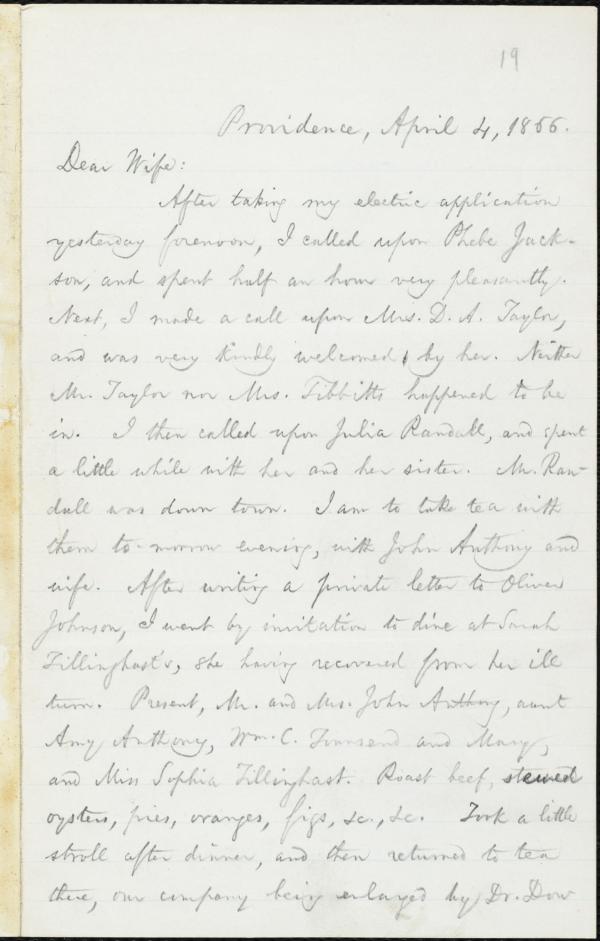 19
Providence, April 4, 1866.
Dear Wife:
After taking my electric application
yesterday forenoon, I called upon Phebe Jack-
son, and spent half an hour very pleasantly.
Next, I made a call upon Mrs. D. A. Taylor,
and was very kindly welcomed by her. Neither
Mr. Taylor nor Mrs. Tibbitts happened to be
in. I then called upon Julia Randall, and spent
a little while with her and her sister. Mr. Ran-
dall was down town. I am to take tea with
them to-morrow evening, with John Anthony and
wife. After writing a private letter to Oliver
Johnson, I went by invitation to dine at Sarah
Tillinghast's, she having recovered from her ill
turn. Present, Mr. and Mrs. John Anthony, aunt
Amy Anthony, Wm. C. Townsend and Mary,
and Miss Sophia Tillinghast. Roast beef, stewed
oysters, pies, oranges, figs, &c., &c. Took a little
stroll after dinner, and then returned to tea
there, our company being enlarged by Dr. Dow